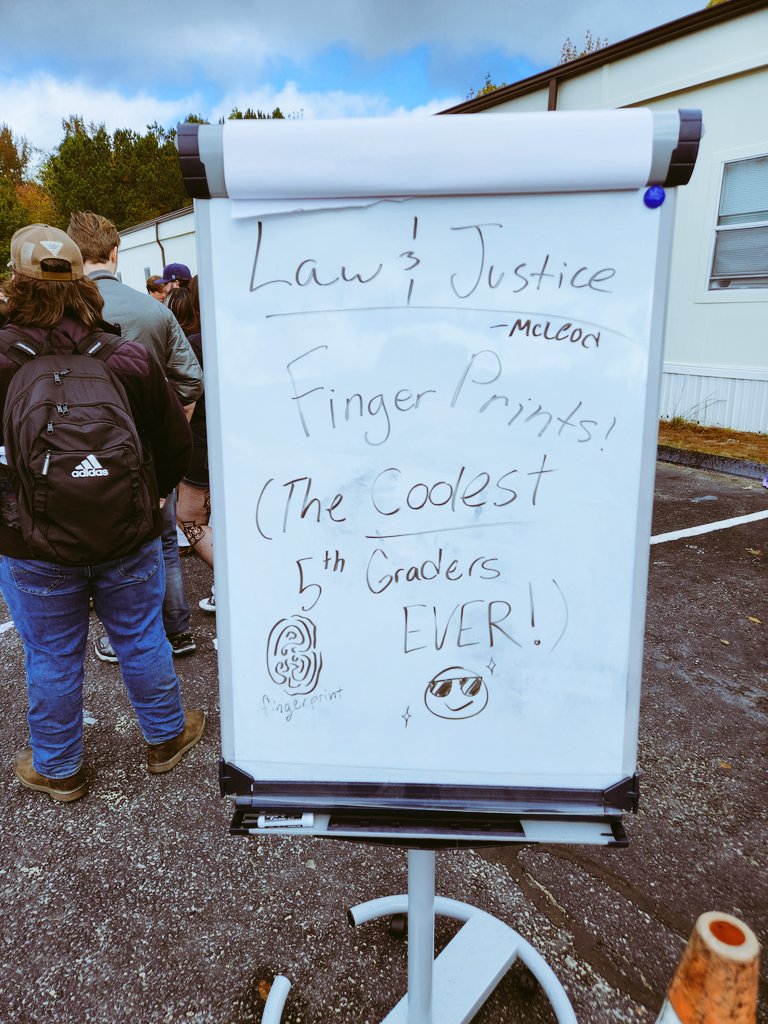 Law & Justice
-McLeod
Finger Prints!
(The Coolest
5th Graders
EVER!)
fingerprint
adidas